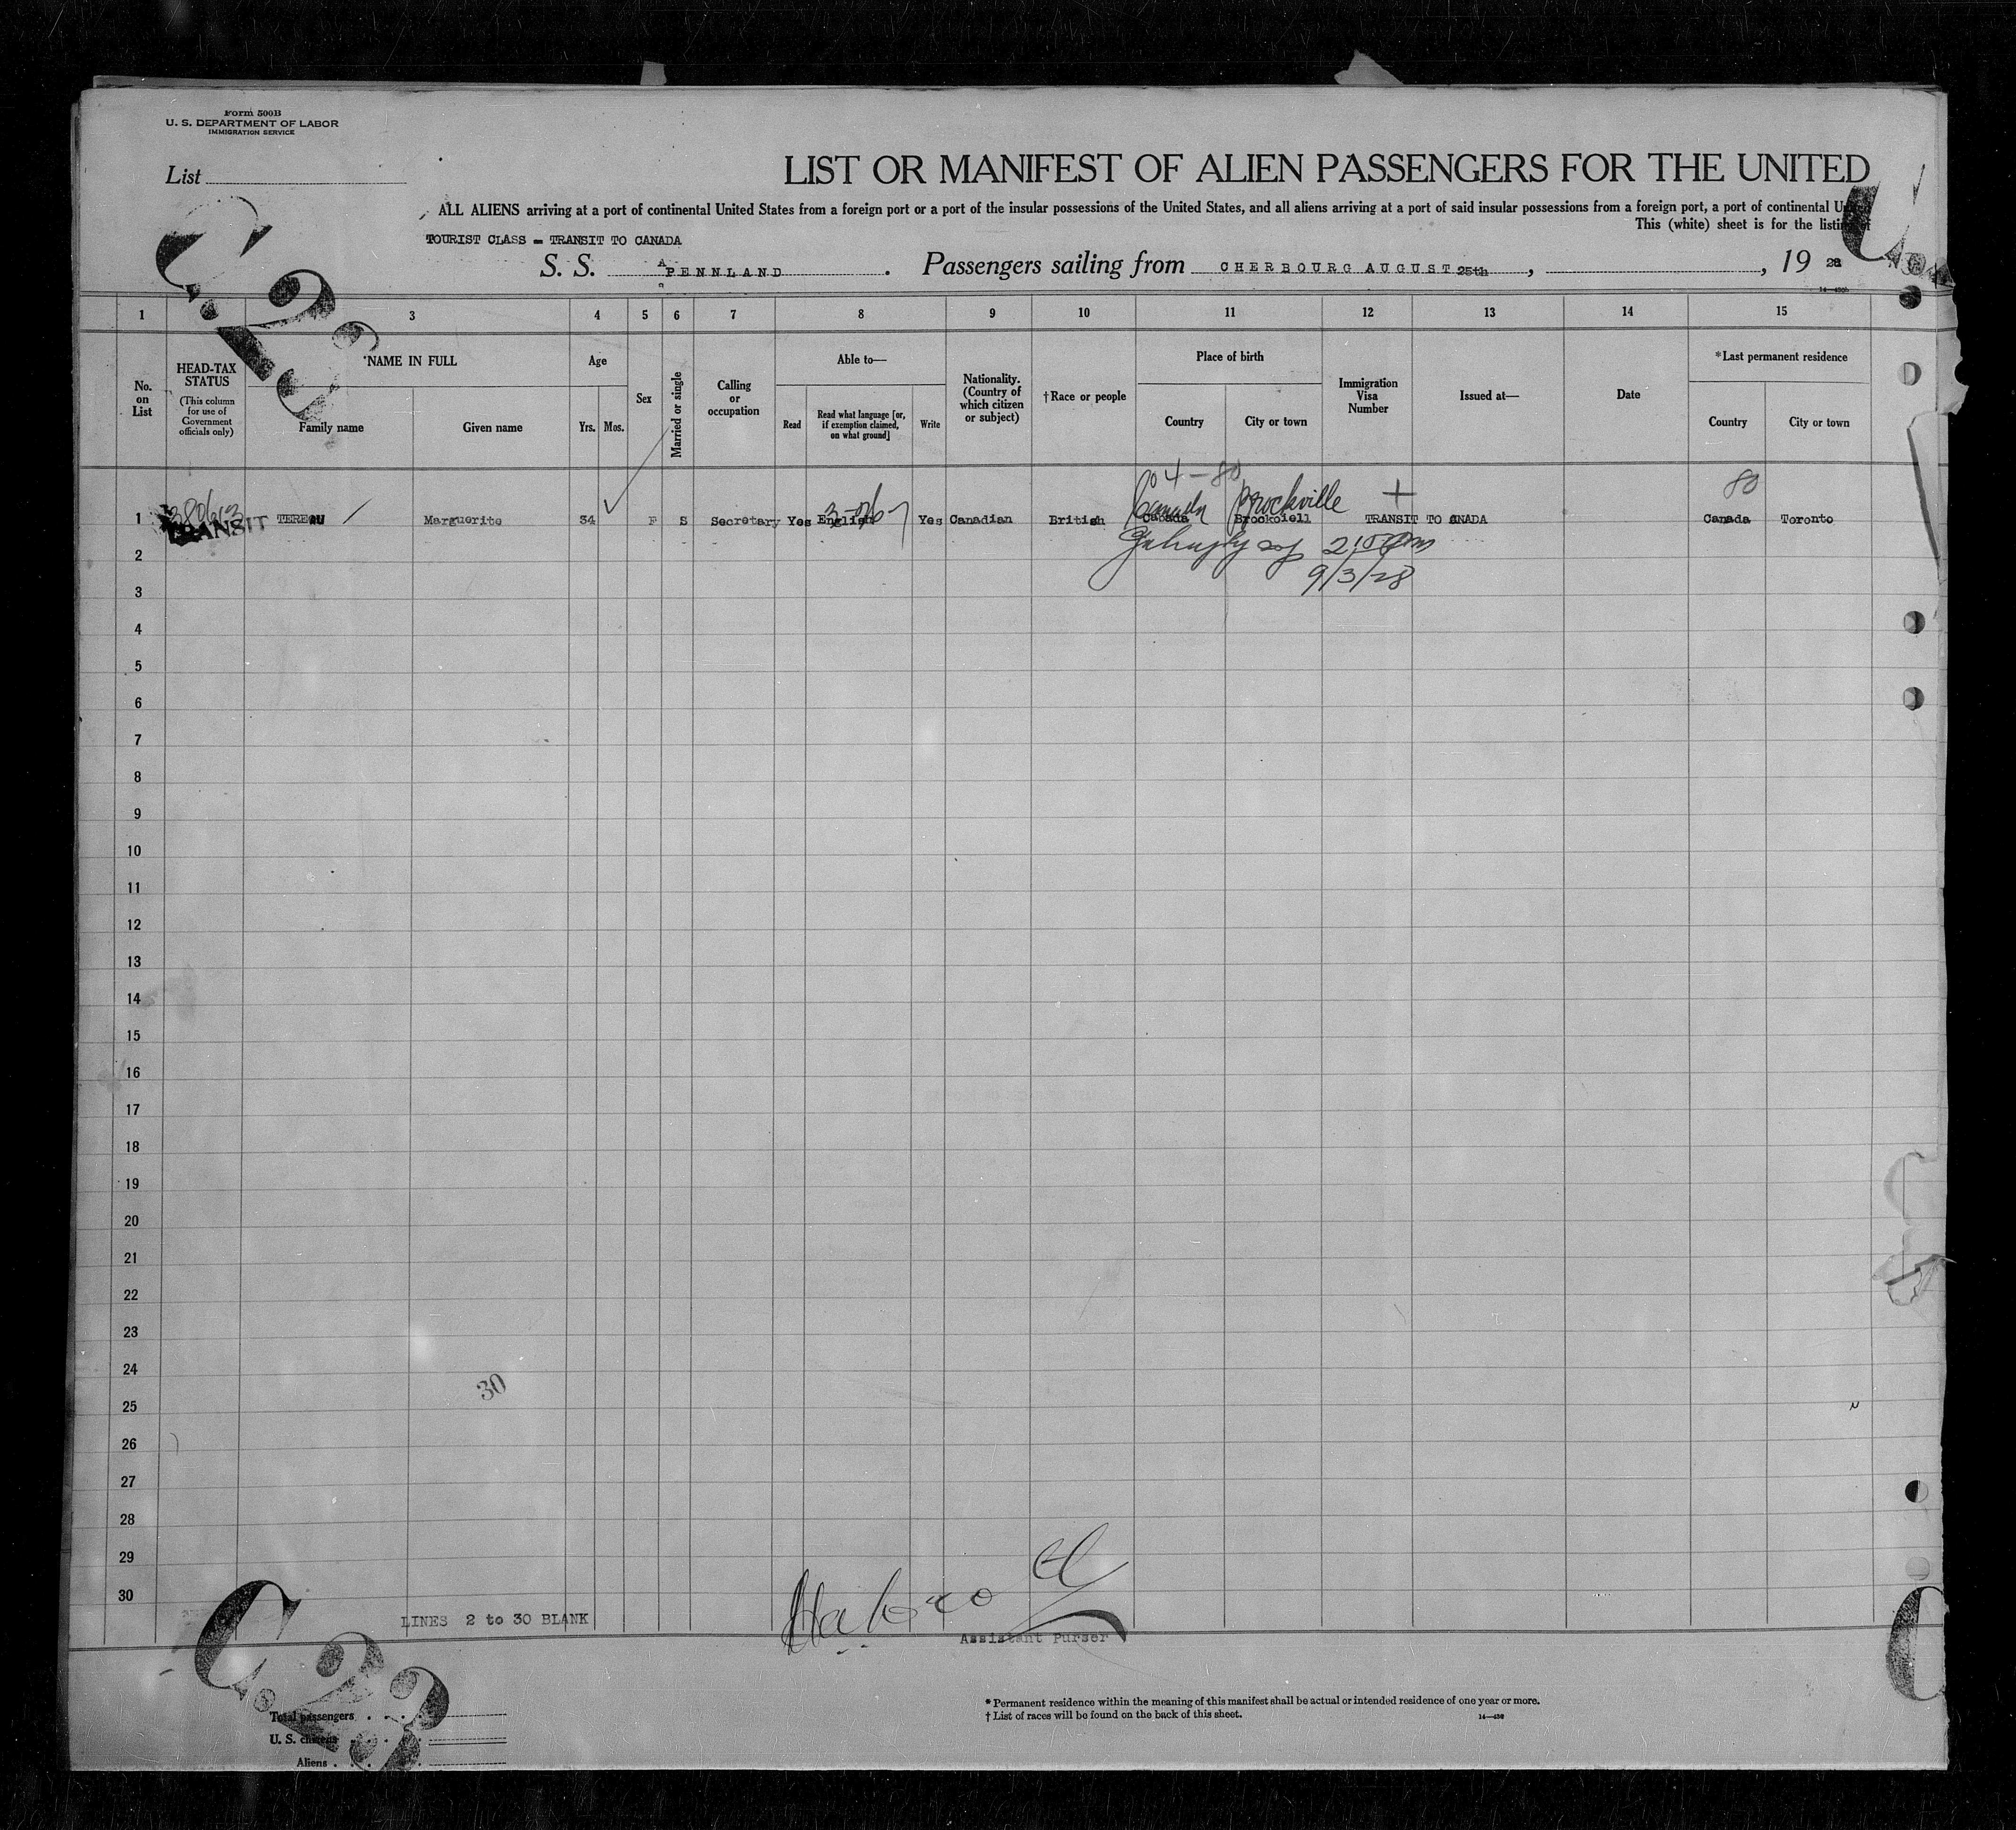 Form 500B
U. S. DEPARTMENT OF LABOR
IMMIGRATION SERVICE
List
LIST OR MANIFEST OF ALIEN PASSENGERS FOR THE UNITED
ALL ALIENS arriving at a port of continental United States from a foreign port or a port of the insular possessions of the United States, and all aliens arriving at a port of said insular possessions from a foreign port, a port of continental United
This (white) sheet is for the listing of
TOURIST CLASS = TRANSIT TO CANADA
S. S. PENNLAND. Passengers sailing from CHERBOURG AUGUST 25th, , 19 28
C. 23
1 3 4 5 6 7 8 9 10 11 12 13 14 15
No. on List
HEAD-TAX STATUS
(This column for use of Government officials only)
NAME IN FULL
Family name Given name
Age
Yrs. Mos.
Sex
Married or single
Calling or occupation
Able to—
Read
Read what language [or, if exemption claimed, on what ground]
Write
Nationality. (Country of which citizen or subject)
†Race or people
Place of birth
Country City or town
Immigration Visa Number
Issued at—
Date
*Last permanent residence
Country City or town
04-80
80
Canada Brockville +
1 TRANSIT TEREAU / Marguerite 34 F S Secretary Yes English Yes Canadian British Canada Brockoiell TRANSIT TO ANADA Canada Toronto
2
9/3/28
3
4
5
6
7
8
9
10
11
12
13
14
15
16
17
18
19
20
21
22
23
24
30
25
26
27
28
29
30
LINES 2 to 30 BLANK
Assistant Purser
C. 23
* Permanent residence within the meaning of this manifest shall be actual or intended residence of one year or more.
† List of races will be found on the back of this sheet.
Total passengers
U. S. citizens
Aliens